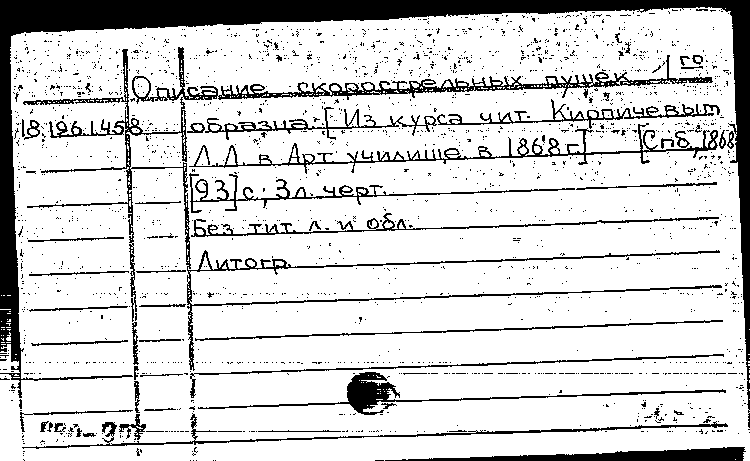 Описание скорострельных пушек 1го
18.126.1.458 образца. [Из курса чит. Кирпичевым
Л.Л. в Арт училище в 1868 г] [Спб, 1868]
[93] с; 3 л. черт.
Без тит. л. и обл.
Литогр.